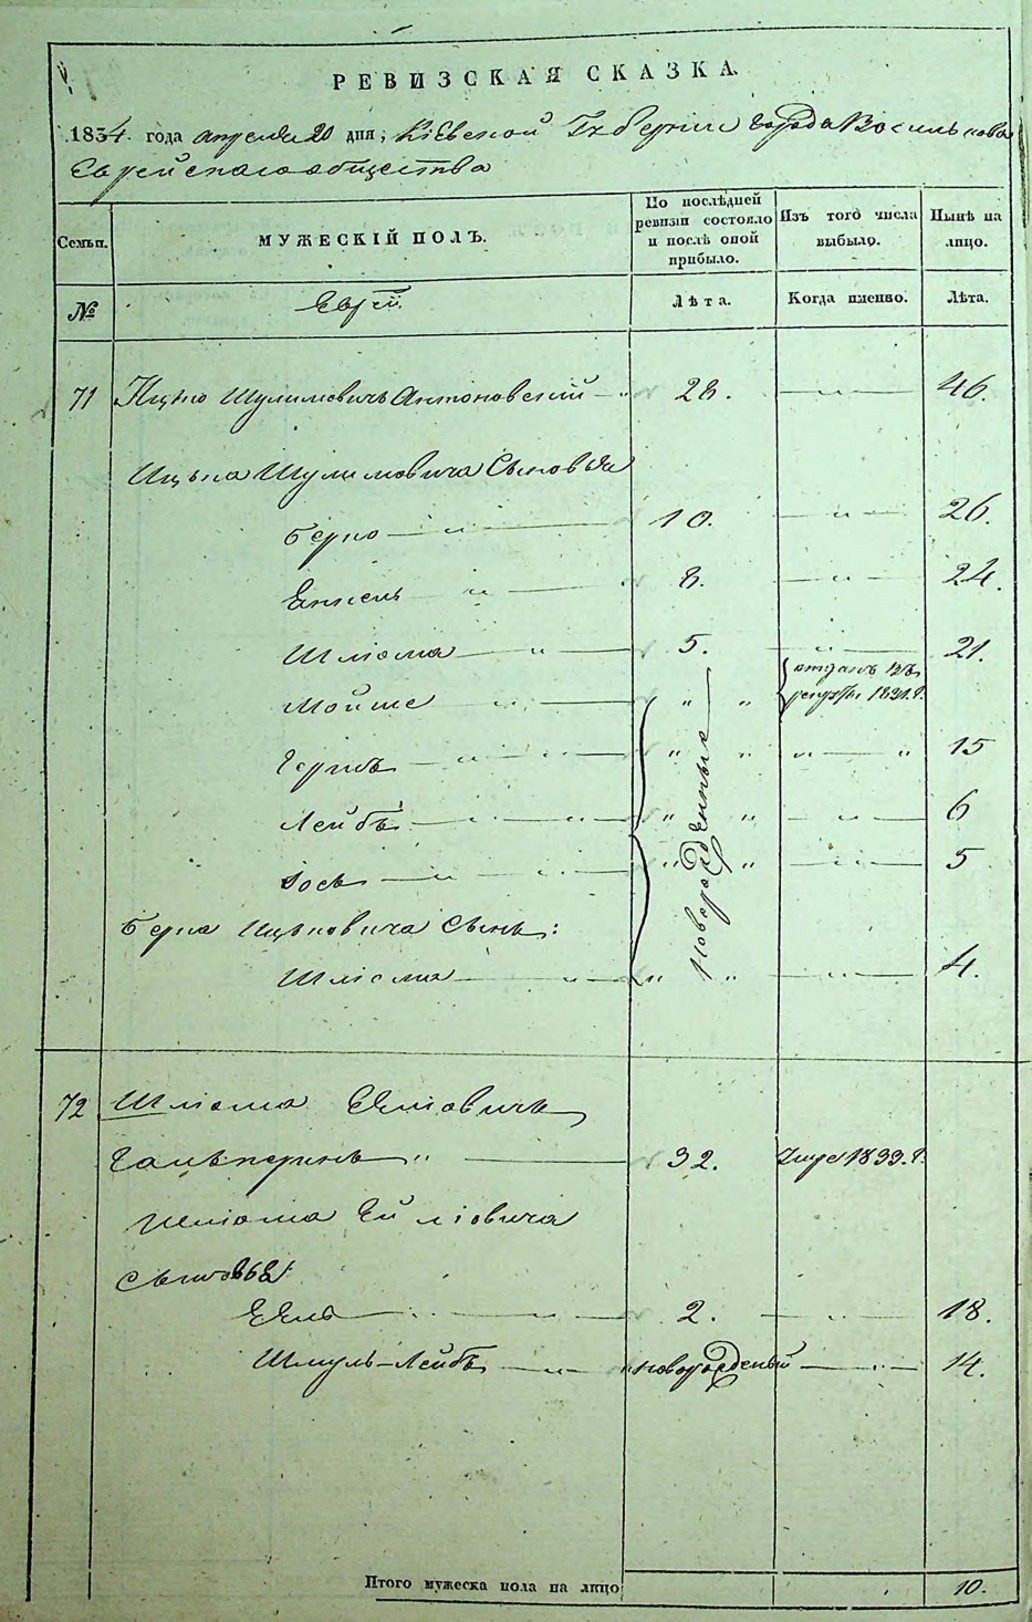 РЕВИЗСКАЯ СКАЗКА.
1834. года апреля 20 дня, Кіевской Губерніи города Василькова
Еврейскаго общества
Семьи. МУЖЕСКІЙ ПОЛЪ. По послѣдней ревизіи состояло и послѣ оной прибыло. Изъ того числа выбыло. Нынѣ на лицо.
№ Еврей. Лѣта. Когда именно. Лѣта.
71 Ицько Шулимовичъ Антоновскій — " 28. — " — 46.
Ицька Шулимовича Сыновья
Берко — " — 10. — " — 26.
Янкель " — 8. — " — 24.
Шліома — " — 5. " — 21.
Мойше " — " " отданъ въ рекруты 1831. г.
Гершъ — " — " — " " " — " 15
Лейбъ — " — " " " — " — 6
Іось — " — " — " " — " — 5
Новорожденные
Берка Ицьковича Сынъ:
Шліома — " " " — " — 4.
72 Шліома Еліовичъ
Гальперинъ " — 32. Умре 1833. г.
Шліома Ейліовича
Сыновья
Еля — " — 2. — " — 18.
Шмуль-Лейбъ — " — новорожденый — " — 14.
Итого мужеска пола на лицо 10.